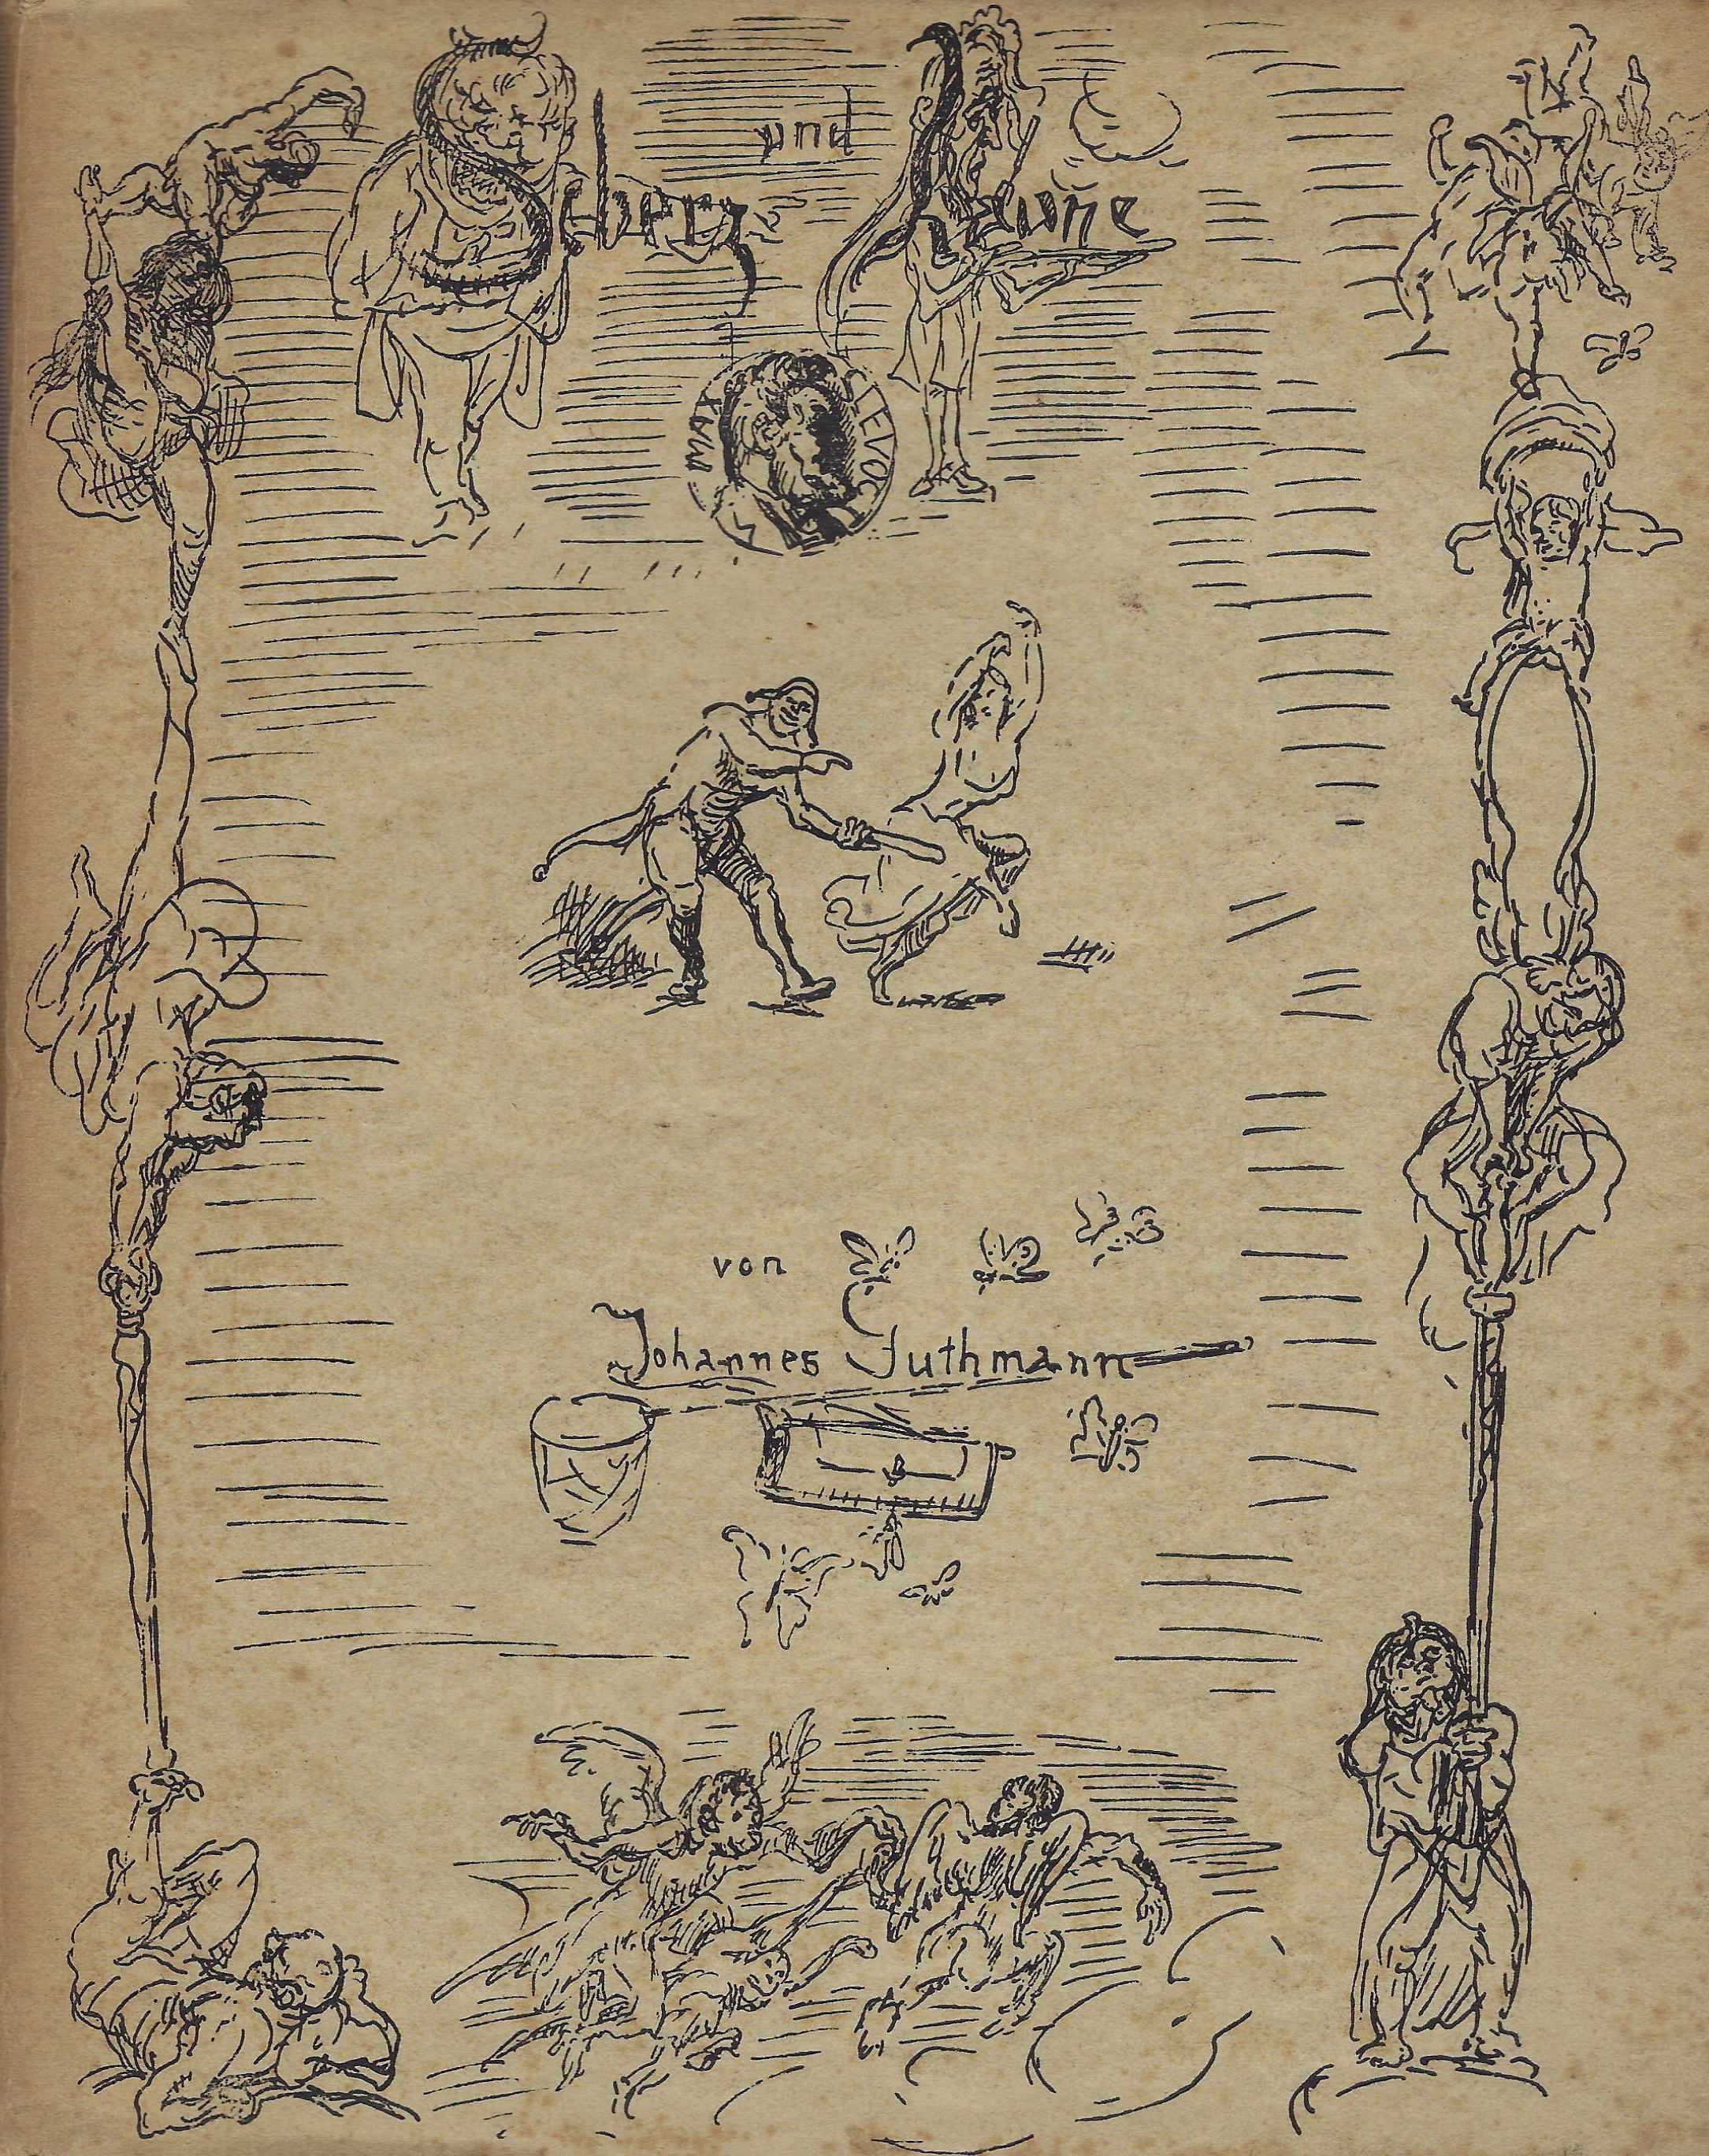 Scherz
und
Laune
MAX SLEVOGT
von
Johannes Guthmann